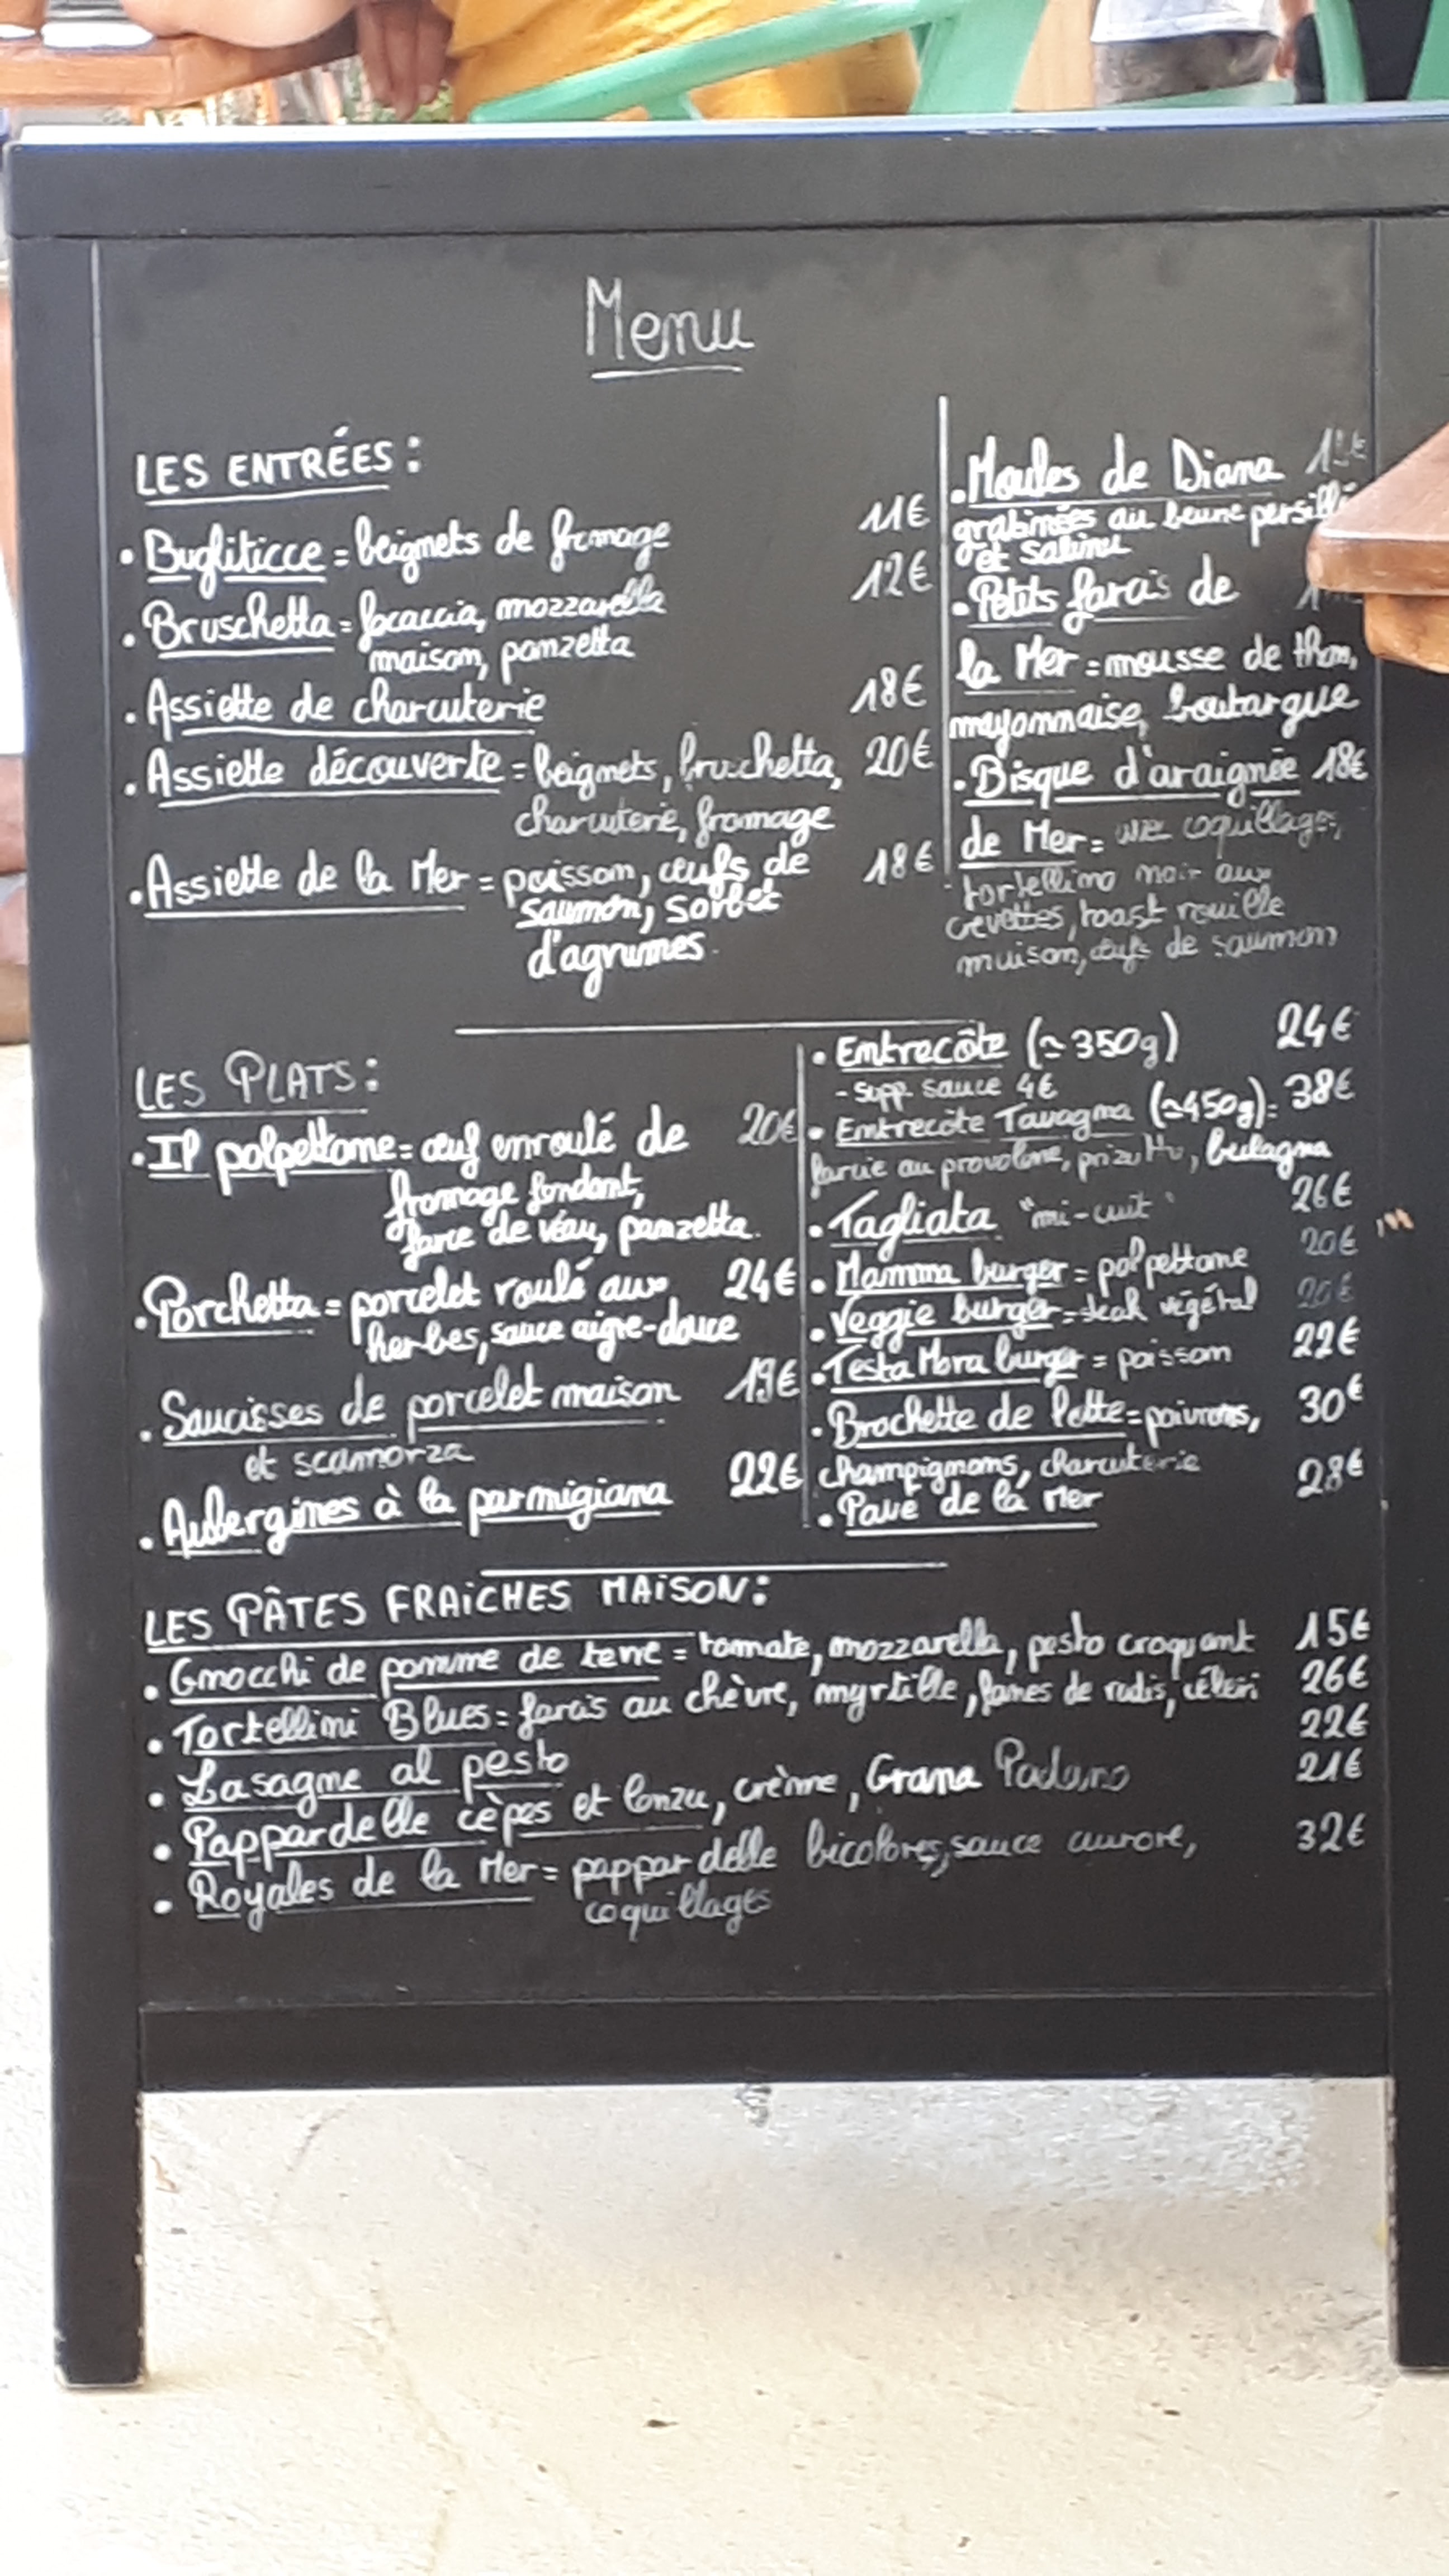 Menu
LES ENTRÉES :
• Bugliticce = beignets de fromage 11€
• Bruschetta = focaccia, mozzarella 12€
maison, panzetta
• Assiette de charcuterie 18€
• Assiette découverte = beignets, bruschetta, 20€
charcuterie, fromage
• Assiette de la Mer = poisson, œufs de 18€
saumon, sorbet
d'agrumes.
• Moules de Diana
gratinées au beurre persillé
et salinu
• Petits farcis de
la Mer = mousse de thon,
mayonnaise, boutargue
• Bisque d'araignée 18€
de Mer = coquillages,
tortellino noir aux
crevettes, toast rouille
maison, œufs de saumon
LES PLATS :
• Il polpettone = œuf enroulé de 20€
fromage fondant,
farce de veau, panzetta.
• Porchetta = porcelet roulé aux 24€
herbes, sauce aigre-douce
• Saucisses de porcelet maison 19€
et scamorza
• Aubergines à la parmigiana 22€
• Entrecôte (≃350g) 24€
- supp. sauce 4€
• Entrecôte Tavagna (≃450g) = 38€
farcie au provolone, prizuttu, bulagna
• Tagliata "mi-cuit" 26€
• Mamma burger = polpettone 20€
• Veggie burger = steak végétal 20€
• Testa Mora burger = poisson 22€
• Brochette de Lotte = poivrons, 30€
champignons, charcuterie
• Pavé de la Mer 28€
LES PÂTES FRAICHES MAISON :
• Gnocchi de pomme de terre = tomate, mozzarella, pesto croquant 15€
• Tortellini Blues = farcis au chèvre, myrtille, fanes de radis, céleri 26€
• Lasagne al pesto 22€
• Pappardelle cèpes et lonzu, crème, Grana Padano 21€
• Royales de la Mer = pappardelle bicolores, sauce aurore, 32€
coquillages